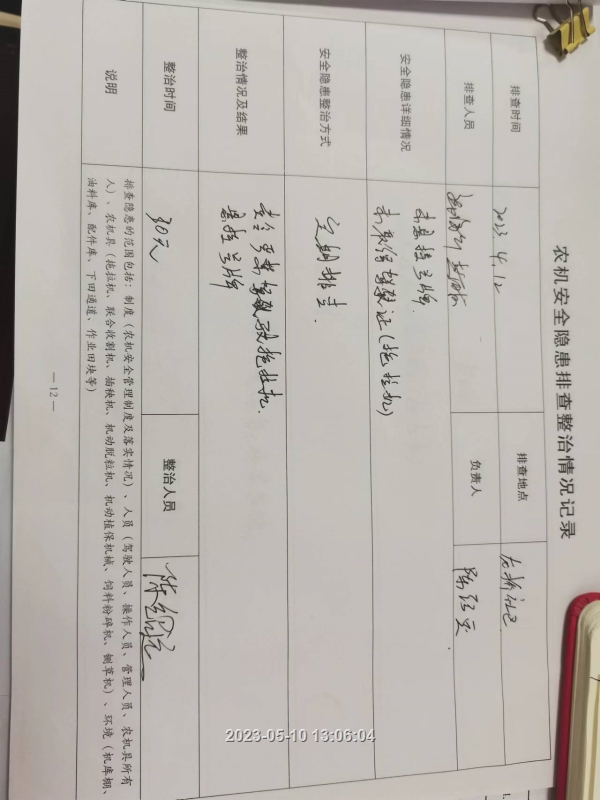 农机安全隐患排查整治情况记录
排查时间 2023.4.12 排查地点
排查人员 负责人
安全隐患详细情况 未悬挂号牌.
未取得驾驶证(拖拉机)
安全隐患整治方式 定期排查.
整治情况及结果 拖拉机.
悬挂号牌
整治时间 30天 整治人员
说明 排查隐患的范围包括:制度(农机安全管理制度及落实情况)、人员(驾驶人员、操作人员、管理人员、农机具所有
人)、农机具(拖拉机、联合收割机、插秧机、机动脱粒机、机动植保机械、饲料粉碎机、铡草机)、环境(机库棚、
油料库、配件库、下田通道、作业田块等)
— 12 —
2023-05-10 13:06:04